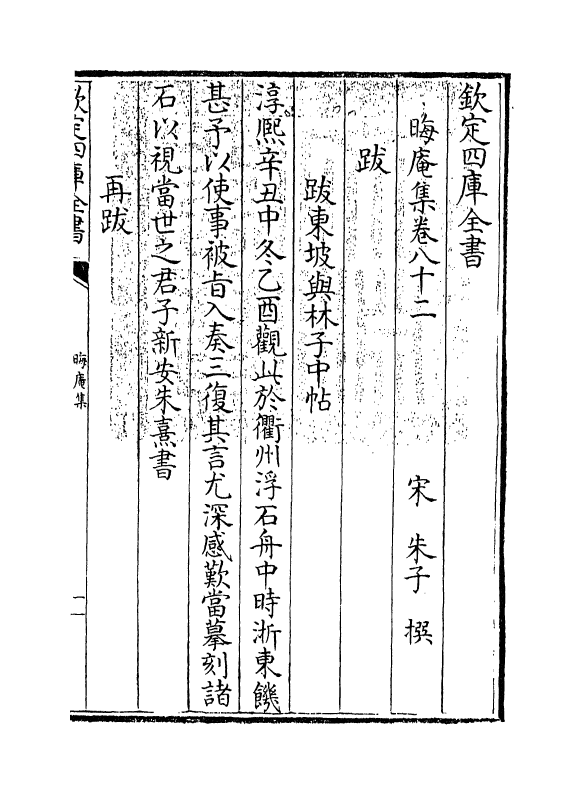 欽定四庫全書
晦庵集卷八十二 宋 朱子 撰
跋
跋東坡與林子中帖
淳熙辛丑中冬乙酉觀此於衢州浮石舟中時浙東饑
甚予以使事被㫖入奏三復其言尤深感歎當摹刻諸
石以視當世之君子新安朱熹書
再跋
欽定四庫全書
晦庵集